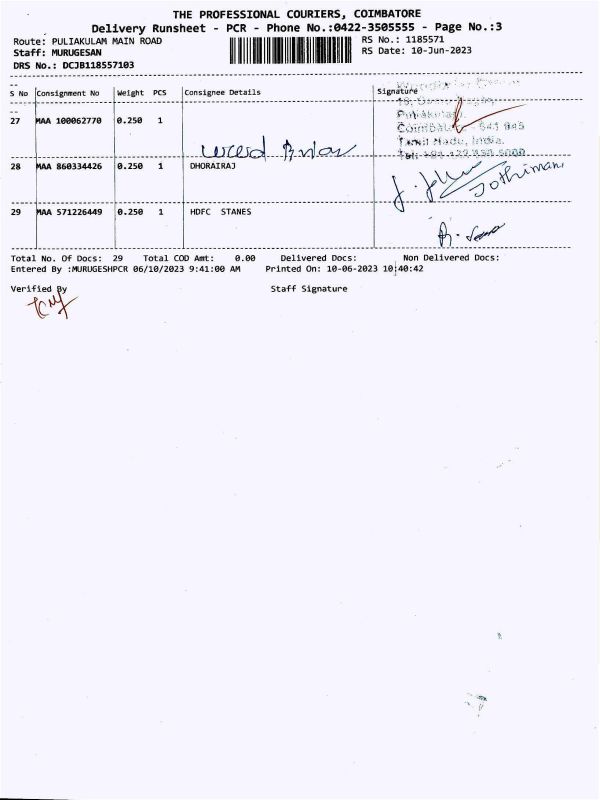 THE PROFESSIONAL COURIERS, COIMBATORE
Delivery Runsheet - PCR - Phone No.:0422-3505555 - Page No.:3
Route: PULIAKULAM MAIN ROAD RS No.: 1185571
Staff: MURUGESAN RS Date: 10-Jun-2023
DRS No.: DCJB118557103
S No Consignment No Weight PCS Consignee Details Signature
27 MAA 100062770 0.250 1
Puliakulam,
Coimbatore - 641 045
Tamil Nadu, India.
28 MAA 860334426 0.250 1 DHORAIRAJ
Jothimani
29 MAA 571226449 0.250 1 HDFC STANES
Total No. Of Docs: 29 Total COD Amt: 0.00 Delivered Docs: Non Delivered Docs:
Entered By :MURUGESHPCR 06/10/2023 9:41:00 AM Printed On: 10-06-2023 10:40:42
Verified By Staff Signature